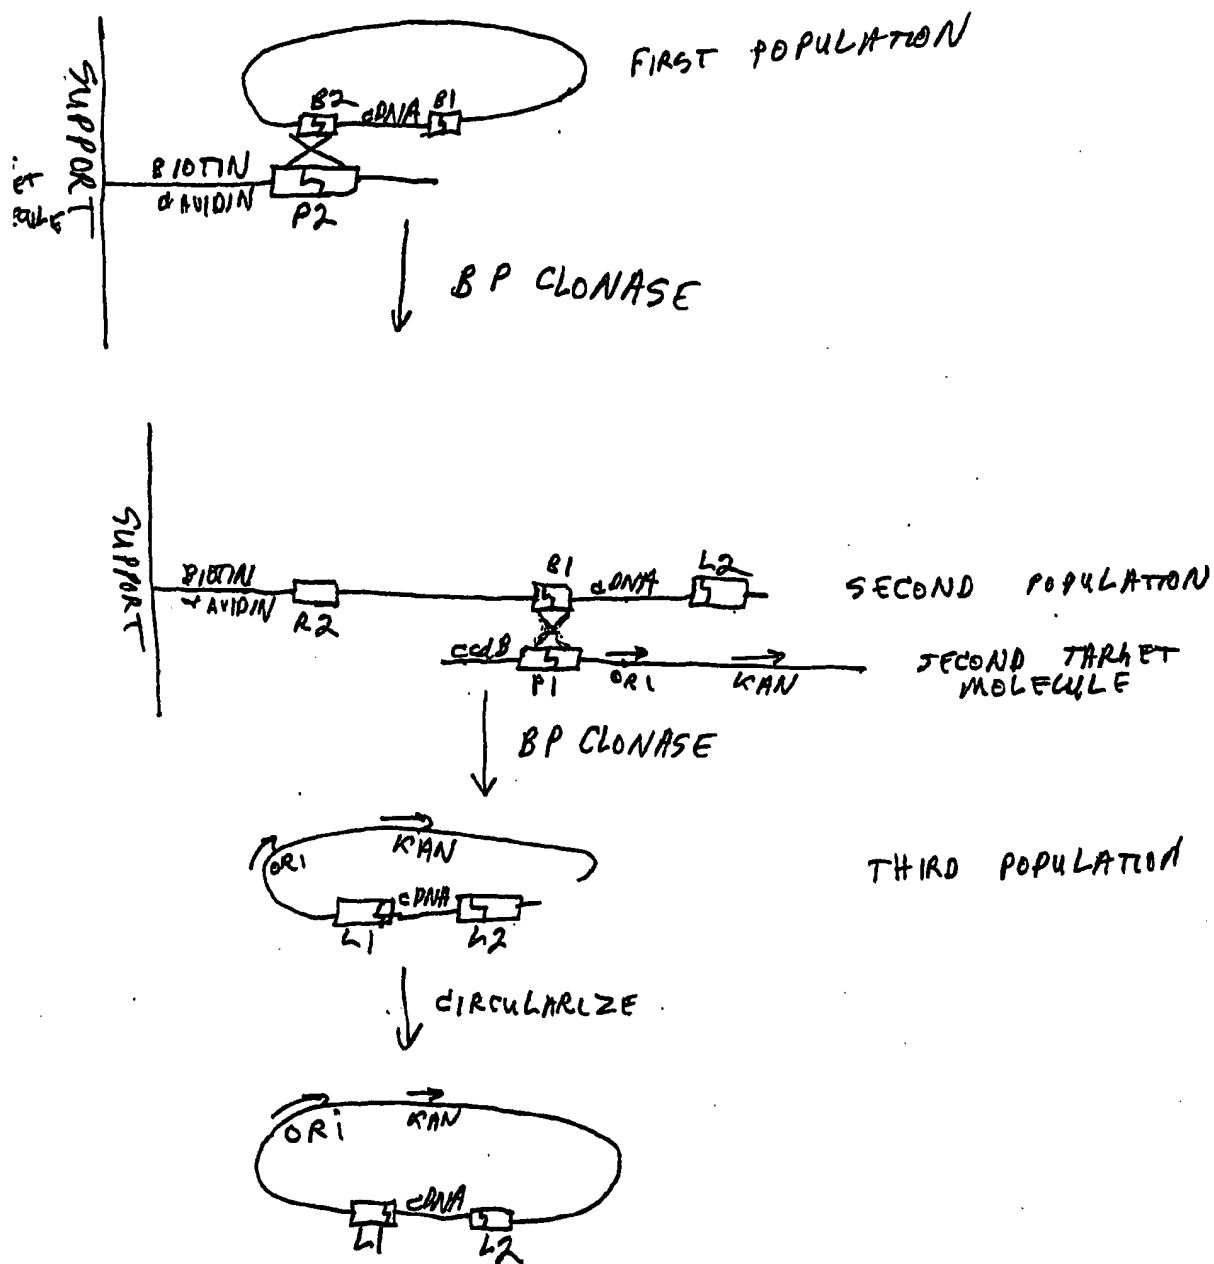 SUPPORT
FIRST POPULATION
B2
cDNA
B1
BIOTIN
AVIDIN
P2
BP CLONASE
SUPPORT
BIOTIN
AVIDIN
R2
B1
cDNA
L2
SECOND POPULATION
ccdB
P1
ORI
KAN
SECOND TARGET
MOLECULE
BP CLONASE
ORI
KAN
cDNA
L1
L2
THIRD POPULATION
CIRCULARIZE
ORi
KAN
cDNA
L1
L2